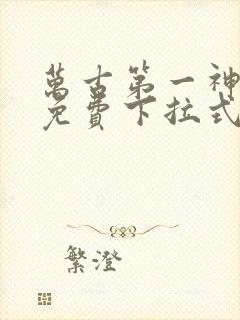 萬古第一神
免費下拉式
繁澄